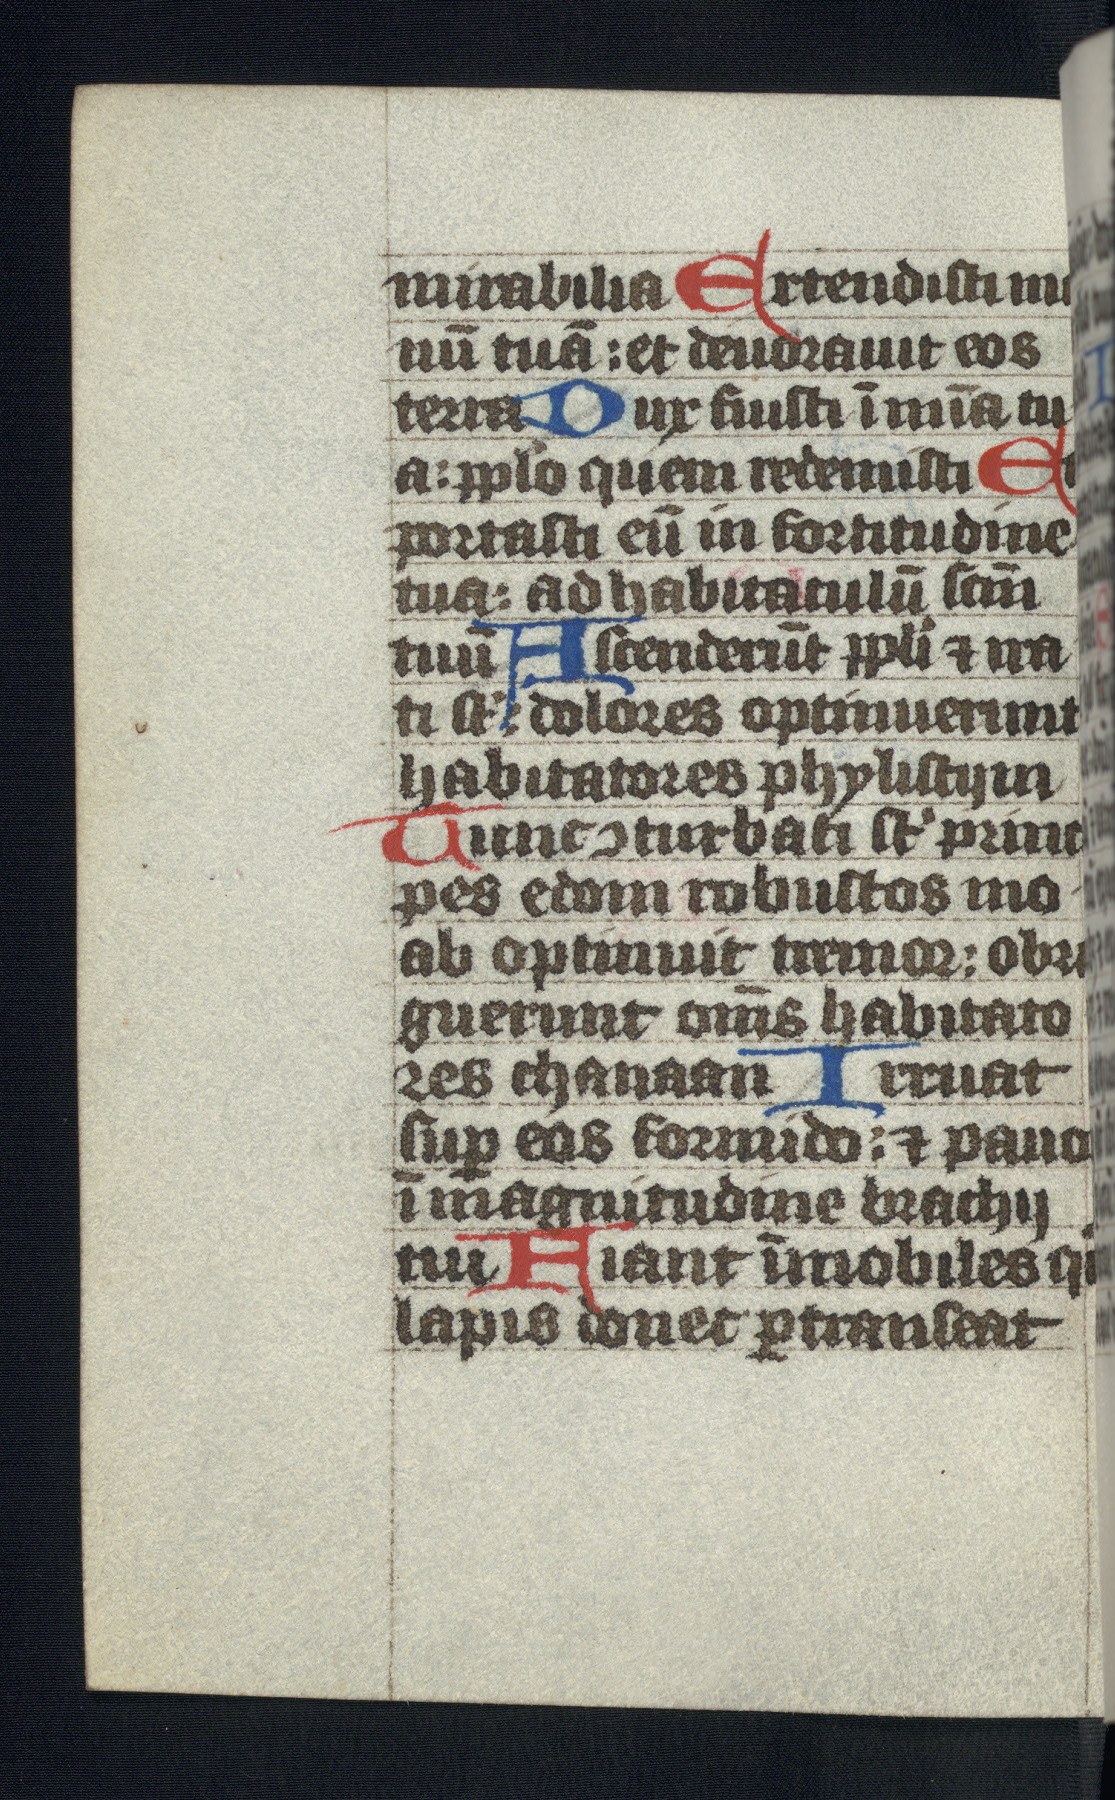 mirabilia Extendisti ma
nū tuā : et deuorauit eos
terra Dux fuisti ī mīa tu
a: pplo quem redemisti Et
portasti eū in fortitudine
tua: ad habitaculū scm̄
tuū Ascenderūt ppli ⁊ ira
ti st: dolores optinuerunt
habitatores phylistijm
Tunc ꝯturbati st princi
pes edom robustos mo
ab optinuit tremor: obri
guerunt om̄s habitato
res chanaan Irruat
suꝑ eos formido: ⁊ pauo
ī magnitudine brachij
tui Fiant īmobiles qi
lapis donec ꝑtranseat